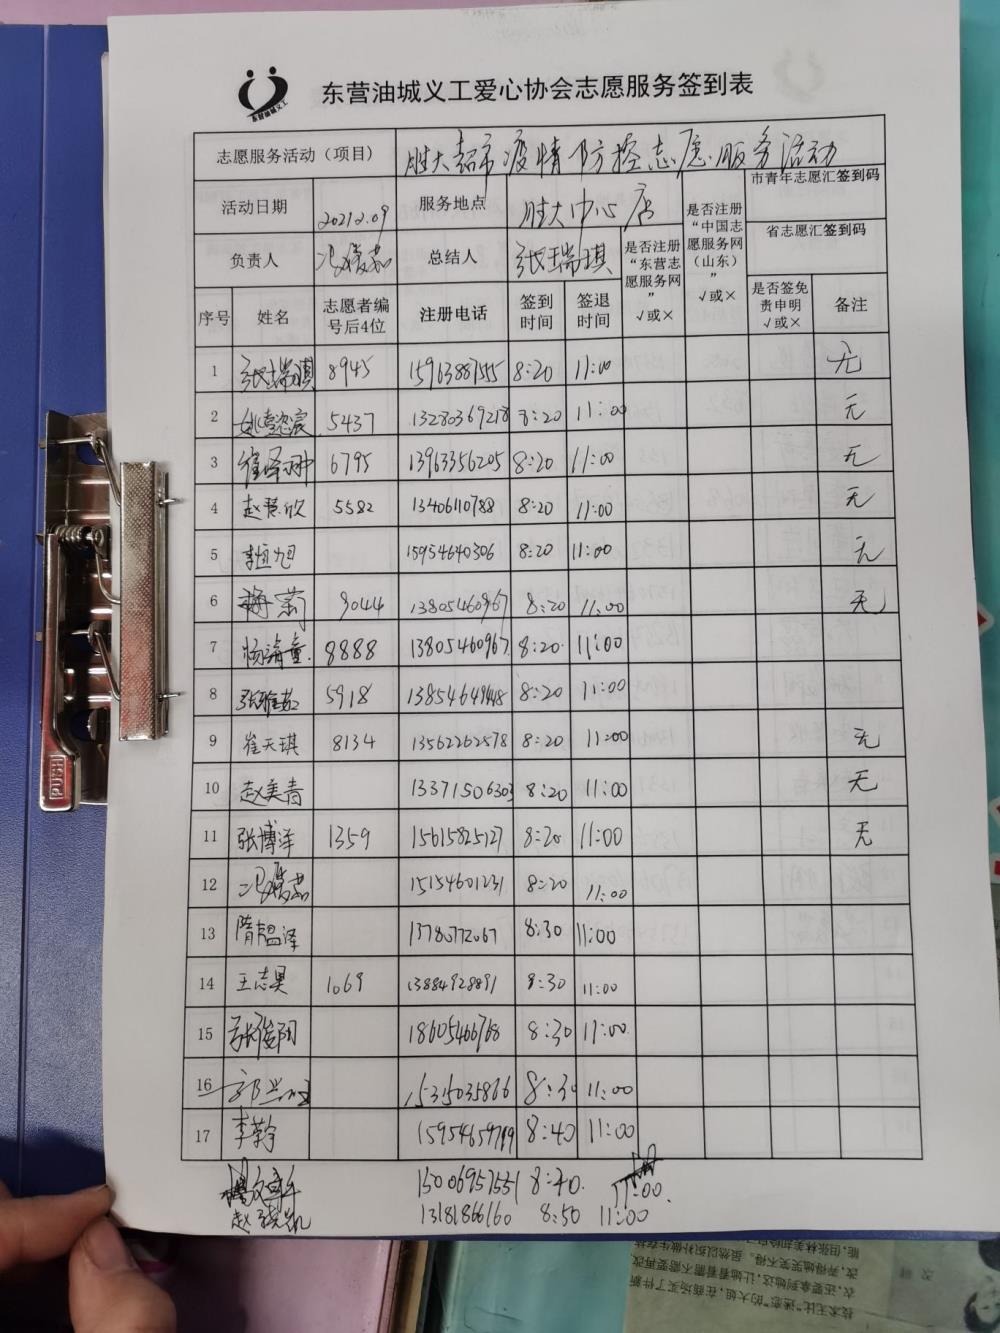 东营油城义工
东营油城义工爱心协会志愿服务签到表
志愿服务活动（项目） 胜大超市疫情防控志愿服务活动
活动日期 2021.2.09 服务地点 胜大中心店 是否注册“中国志愿服务网（山东）” √或× 市青年志愿汇签到码
负责人 总结人 张瑞琪 是否注册“东营志愿服务网” √或× 省志愿汇签到码
序号 姓名 志愿者编号后4位 注册电话 签到时间 签退时间 是否签免责申明 √或× 备注
1 张瑞琪 8945 15963887555 8:20 11:00 无
2 5437 13280369218 8:20 11:00 无
3 6795 13963356205 8:20 11:00 无
4 赵慧欣 5582 13406110788 8:20 11:00 无
5 李恒旭 15954640306 8:20 11:00 无
6 9044 13805460967 8:20 11:00 无
7 8888 13805460967 8:20 11:00
8 5918 8:20 11:00
9 崔天琪 8134 13562262578 8:20 11:00 无
10 赵美青 13371506303 8:20 11:00 无
11 张博泽 1359 15615825127 8:20 11:00 无
12 15154601231 8:20 11:00
13 13780772067 8:30 11:00
14 王志昊 1069 13884928891 8:30 11:00
15 张俊阳 18605466768 8:30 11:00
16 15315035866 8:30 11:00
17 8:40 11:00
15006957551 8:40 11:00
赵晓凯 13181866160 8:50 11:00
PUSH